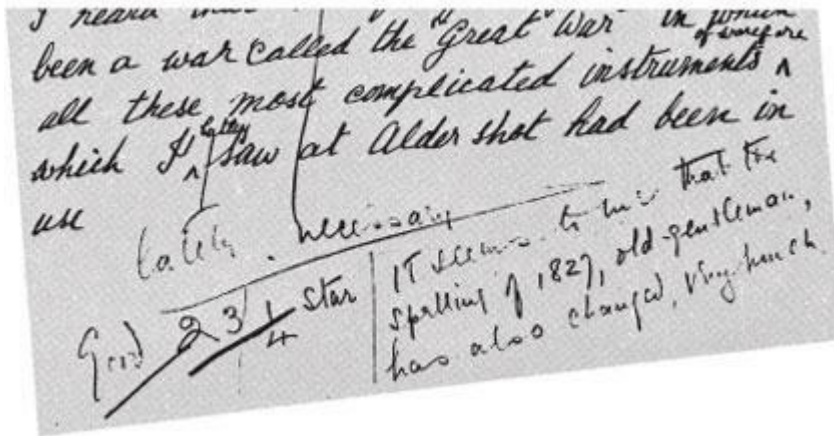 I heard
been a war called the "Great War" in which
of warfare
all these most complicated instruments ^
lately
which I ^ saw at Aldershot had been in
use
lately. necessary
23 1/4 Star
It seems to me that the
spelling of 1827, old-gentleman,
has also changed, very much.